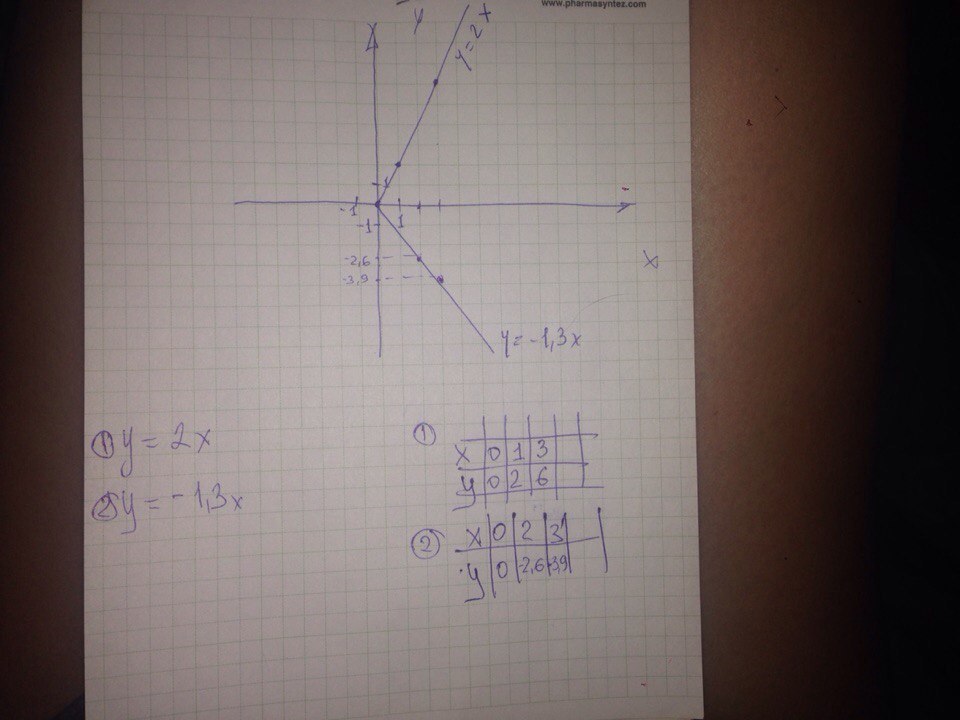 www.pharmasyntez.com
y
y = 2x
1
-1
1
-1
-2,6
-3,9
x
y = -1,3x
① y = 2x
② y = -1,3x
①
x 0 1 3
y 0 2 6
②
x 0 2 3
y 0 -2,6 -3,9